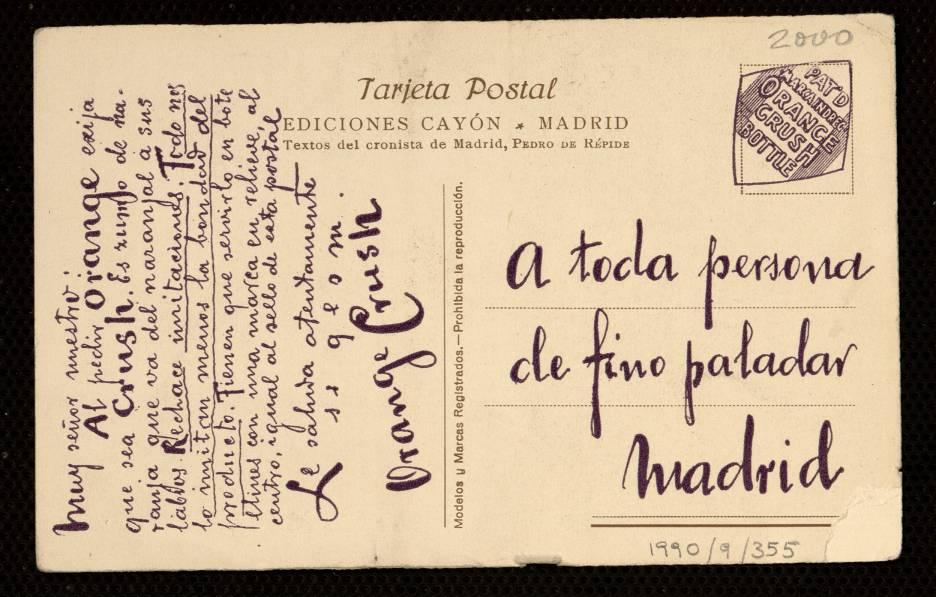 2000
Tarjeta Postal
EDICIONES CAYÓN * MADRID
Textos del cronista de Madrid, PEDRO DE RÉPIDE
PAT'D
ORANGE
CRUSH
BOTTLE
Muy señor nuestro
Al pedir Orange exija
que sea Crush. Es zumo de na-
ranja que va del naranjal á sus
labios. Rechace imitaciones. Todo nos
lo imitan menos la bondad del
producto. Tienen que servirlo en bote
llines con una marca en relieve, al
centro, igual al sello de esta postál
Le saluda atentamente
s s q e s m.
Orange Crush.
Modelos y Marcas Registrados.—Prohibida la reproducción.
A toda persona
de fino paladar
Madrid
1990/9/355